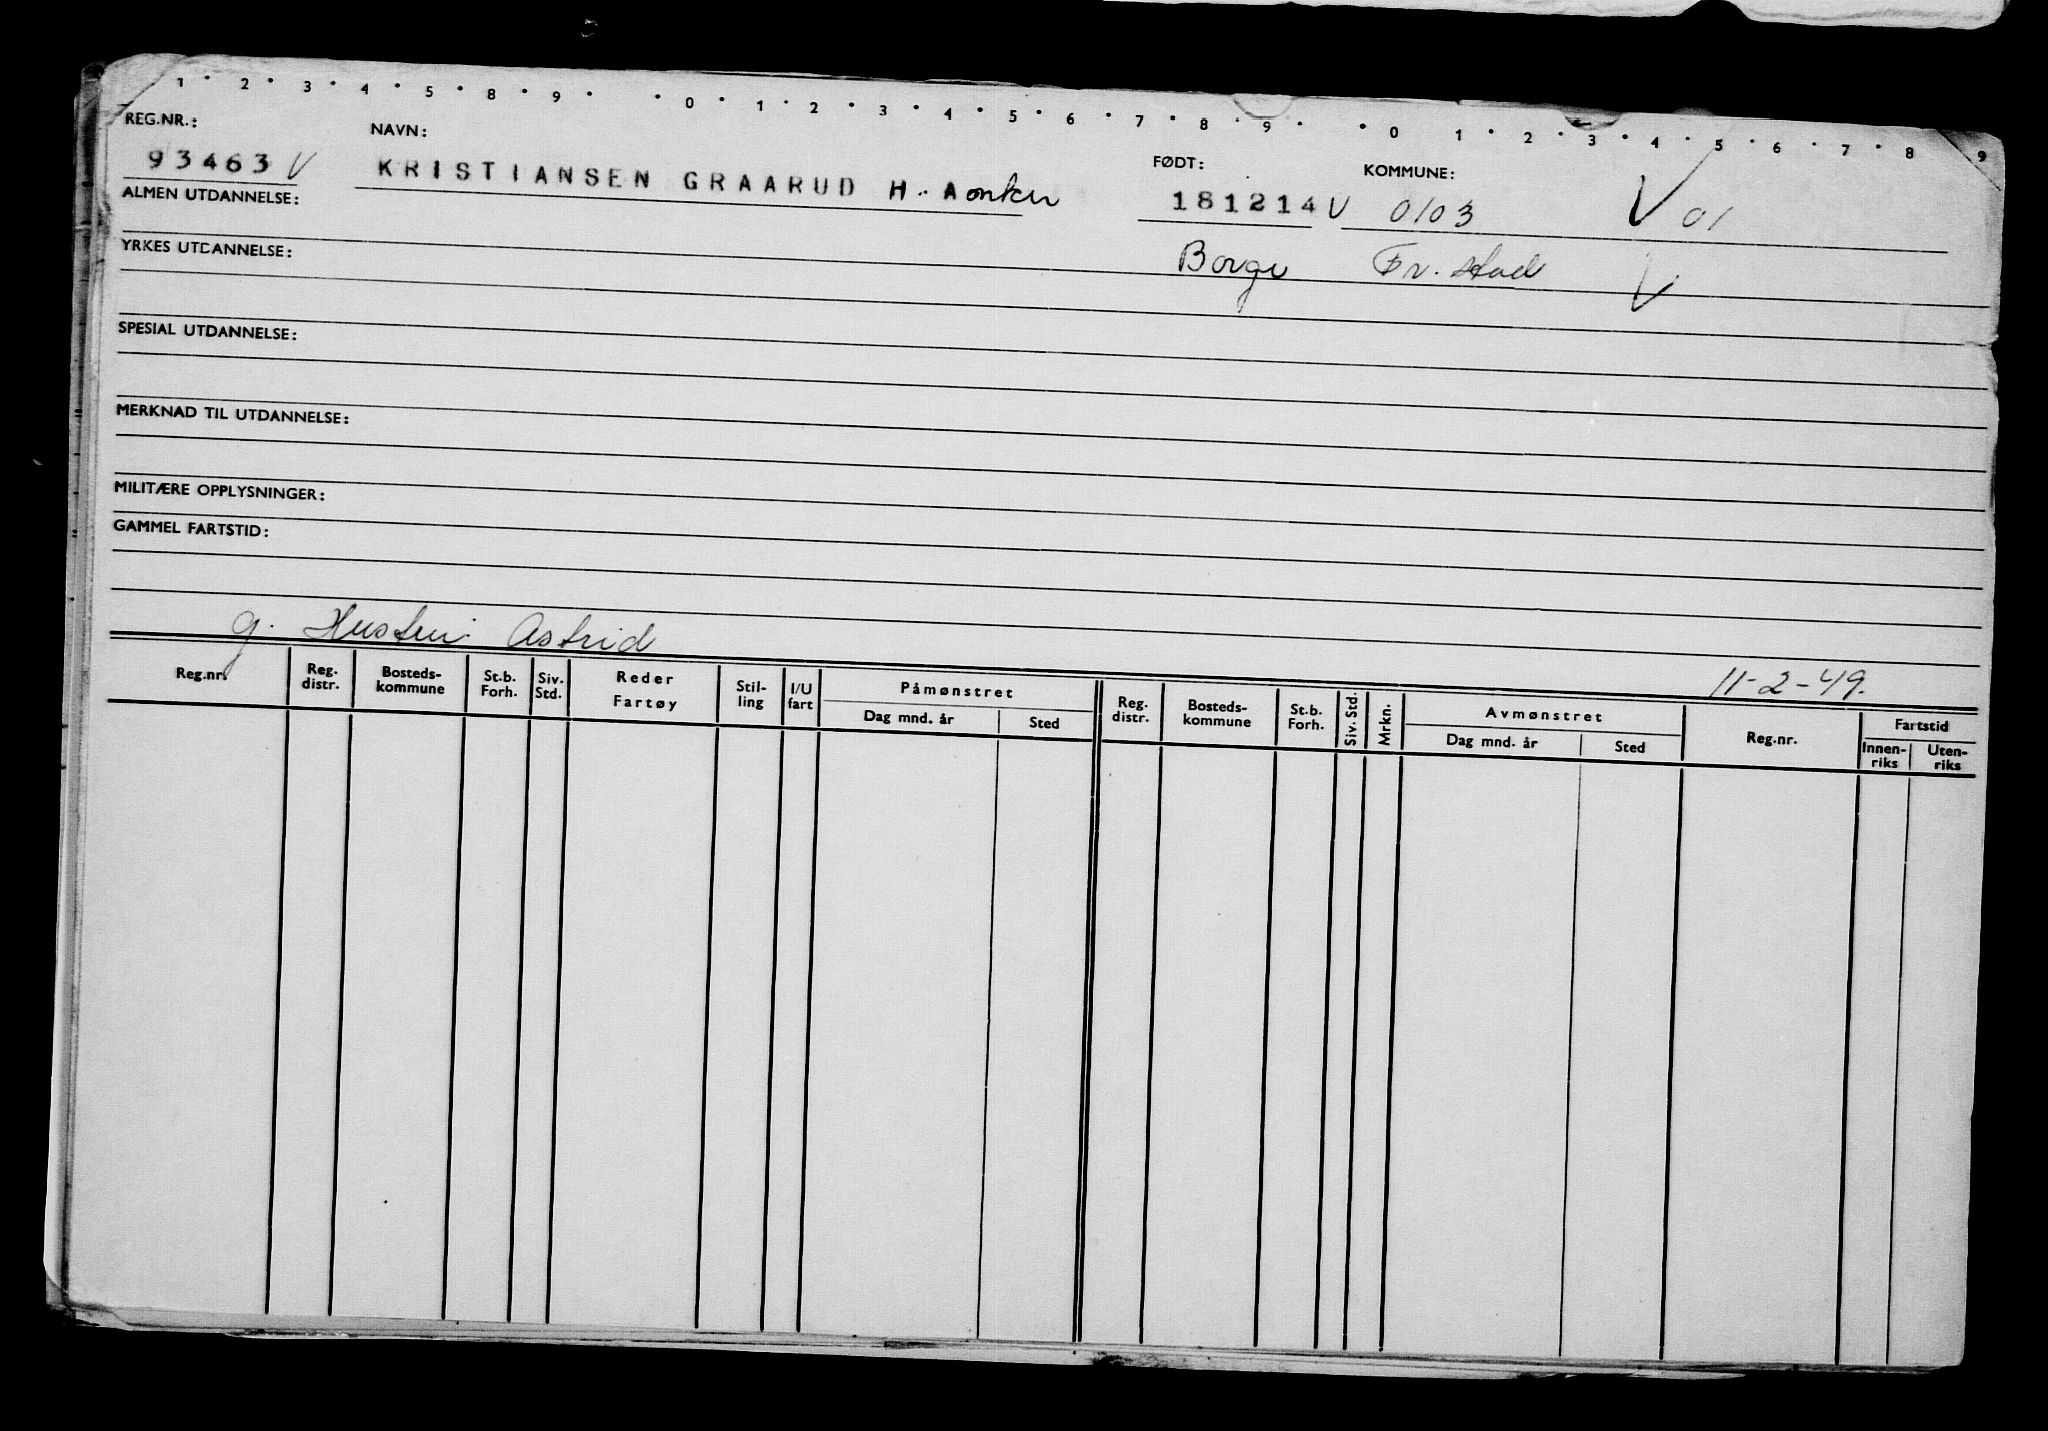 1 · 2 · 3 · 4 · 5 · 8 · 9 · · 0 · 1 · 2 · 3 · 4 · 5 · 6 · 7 · 8 · 9 · · 0 · 1 · 2 · 3 · 4 · 5 · 6 · 7 · 8 · 9
REG.NR.: NAVN: FØDT: KOMMUNE:
93463 V KRISTIANSEN GRAARUD H. A 181214 V 0103 V 01
ALMEN UTDANNELSE:
Borge Fr.stad V
YRKES UTDANNELSE:
SPESIAL UTDANNELSE:
MERKNAD TIL UTDANNELSE:
MILITÆRE OPPLYSNINGER:
GAMMEL FARTSTID:
g. Hustru: Astrid
11-2-49.
Reg.nr. Reg. distr. Bosteds-kommune St.b. Forh. Siv. Std. Reder Fartøy Stil-ling I/U fart Påmønstret Dag mnd. år Sted Reg. distr. Bosteds-kommune St.b. Forh. Siv. Std. Mrkn. Avmønstret Dag mnd. år Sted Reg.nr. Fartstid Innen-riks Uten-riks